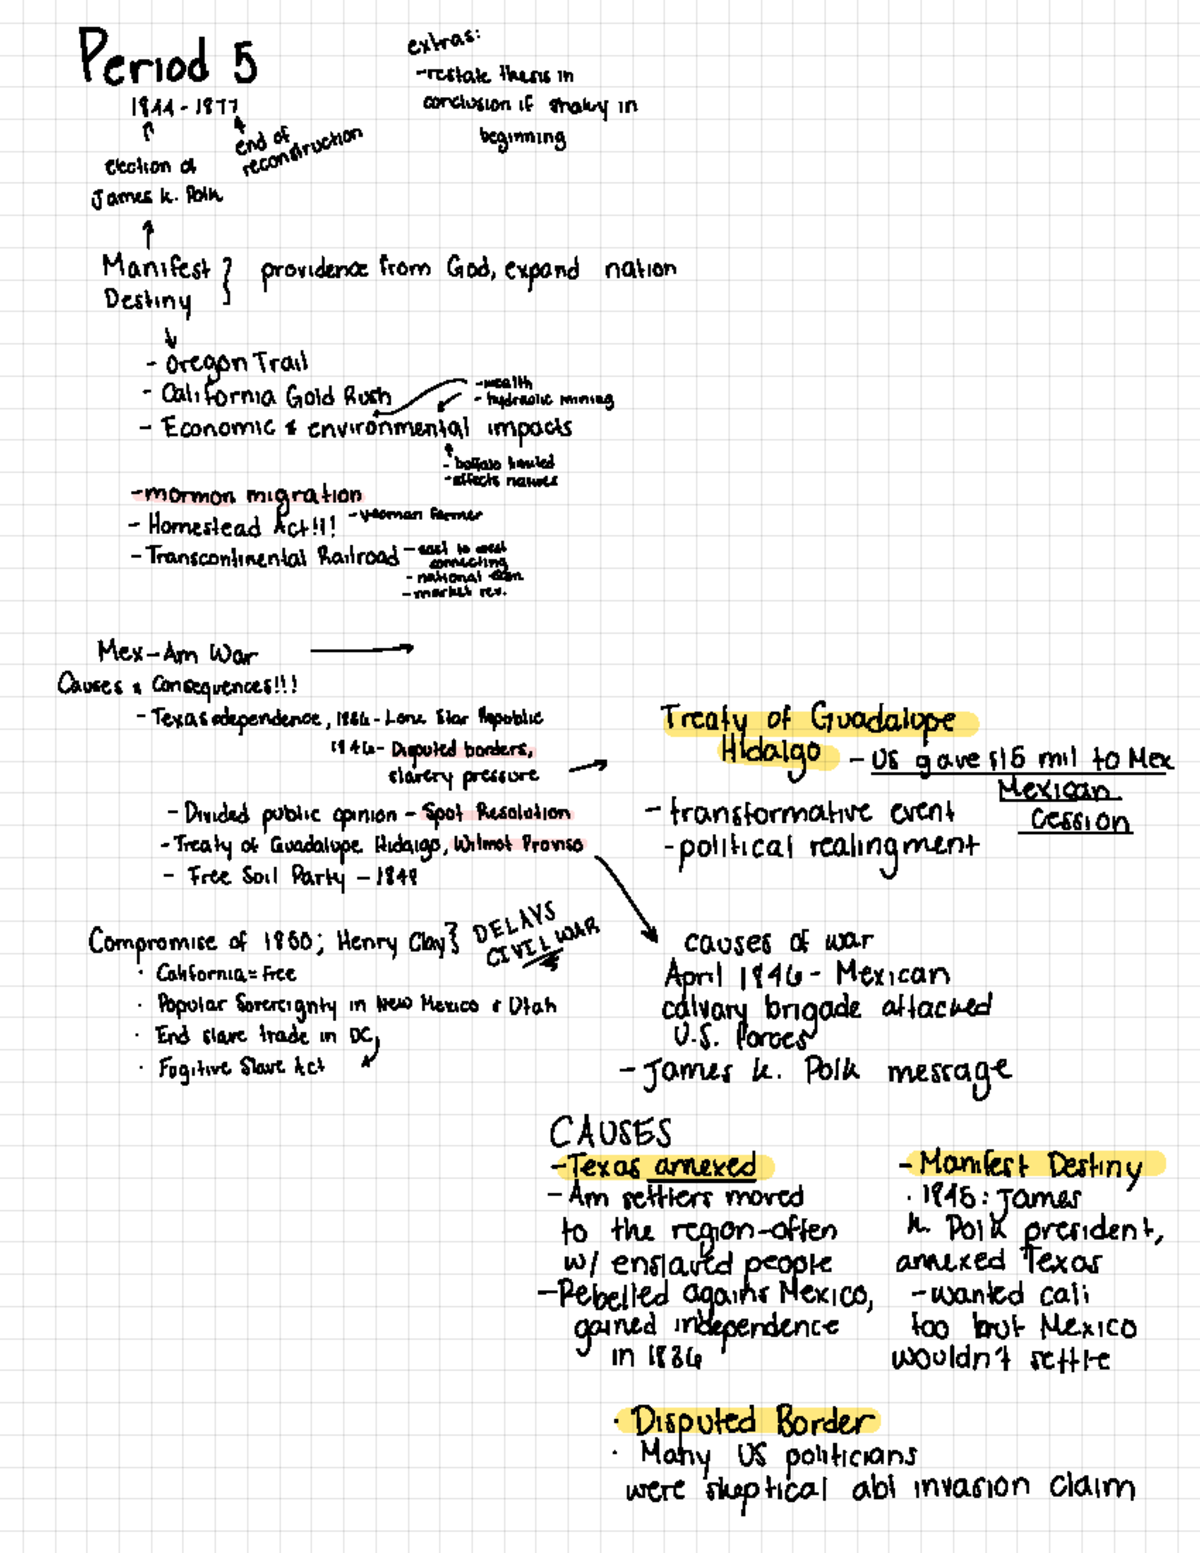 Period 5
1844 - 1877
election of
James K. Polk
end of
reconstruction
extras:
-restate thesis in
conclusion if shaky in
beginning
Manifest
Destiny } providence from God, expand nation
- Oregon Trail
- California Gold Rush
- wealth
- hydraulic mining
- Economic & environmental impacts
- buffalo hunted
- affects natives
-mormon migration
- Homestead Act!!! - yeoman farmer
- Transcontinental Railroad - east to west
connecting
- national
- market rev.
Mex-Am War
Causes & Consequences!!!
- Texas independence, 1836 - Lone Star Republic
1846 - Disputed borders,
slavery pressure
- Divided public opinion - Spot Resolution
- Treaty of Guadalupe Hidalgo, Wilmot Proviso
- Free Soil Party - 1848
Treaty of Guadalupe
Hidalgo - US gave $15 mil to Mex
Mexican
Cession
- transformative event
- political realingment
Compromise of 1850; Henry Clay} DELAYS
CIVIL WAR
· California = free
· Popular Sovereignty in New Mexico & Utah
· End slave trade in DC
· Fugitive Slave Act
causes of war
April 1846 - Mexican
calvary brigade attacked
U.S. forces
- James K. Polk message
CAUSES
- Texas annexed
- Am settlers moved
to the region-often
w/ enslaved people
- Rebelled against Mexico,
gained independence
in 1836
- Manifest Destiny
· 1845: James
K. Polk president,
annexed Texas
- wanted cali
too but Mexico
wouldn't settle
· Disputed Border
· Many US politicians
were skeptical abt invasion claim